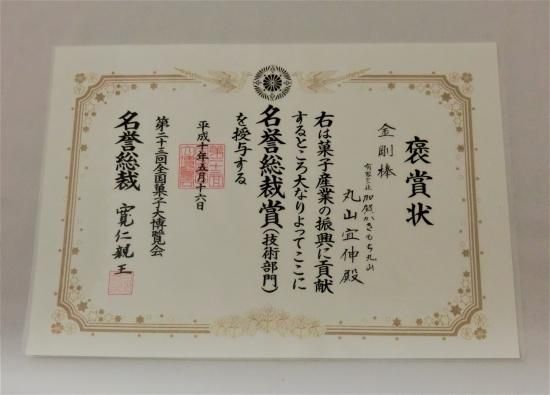 褒賞状
金剛棒
有限会社 加賀かきもち丸山
丸山宜伸殿
右は菓子産業の振興に貢献
するところ大なりよってここに
名誉総裁賞(技術部門)
を授与する
平成十年五月十六日
第二十三回全国菓子大博覧会
名誉総裁 寛仁親王